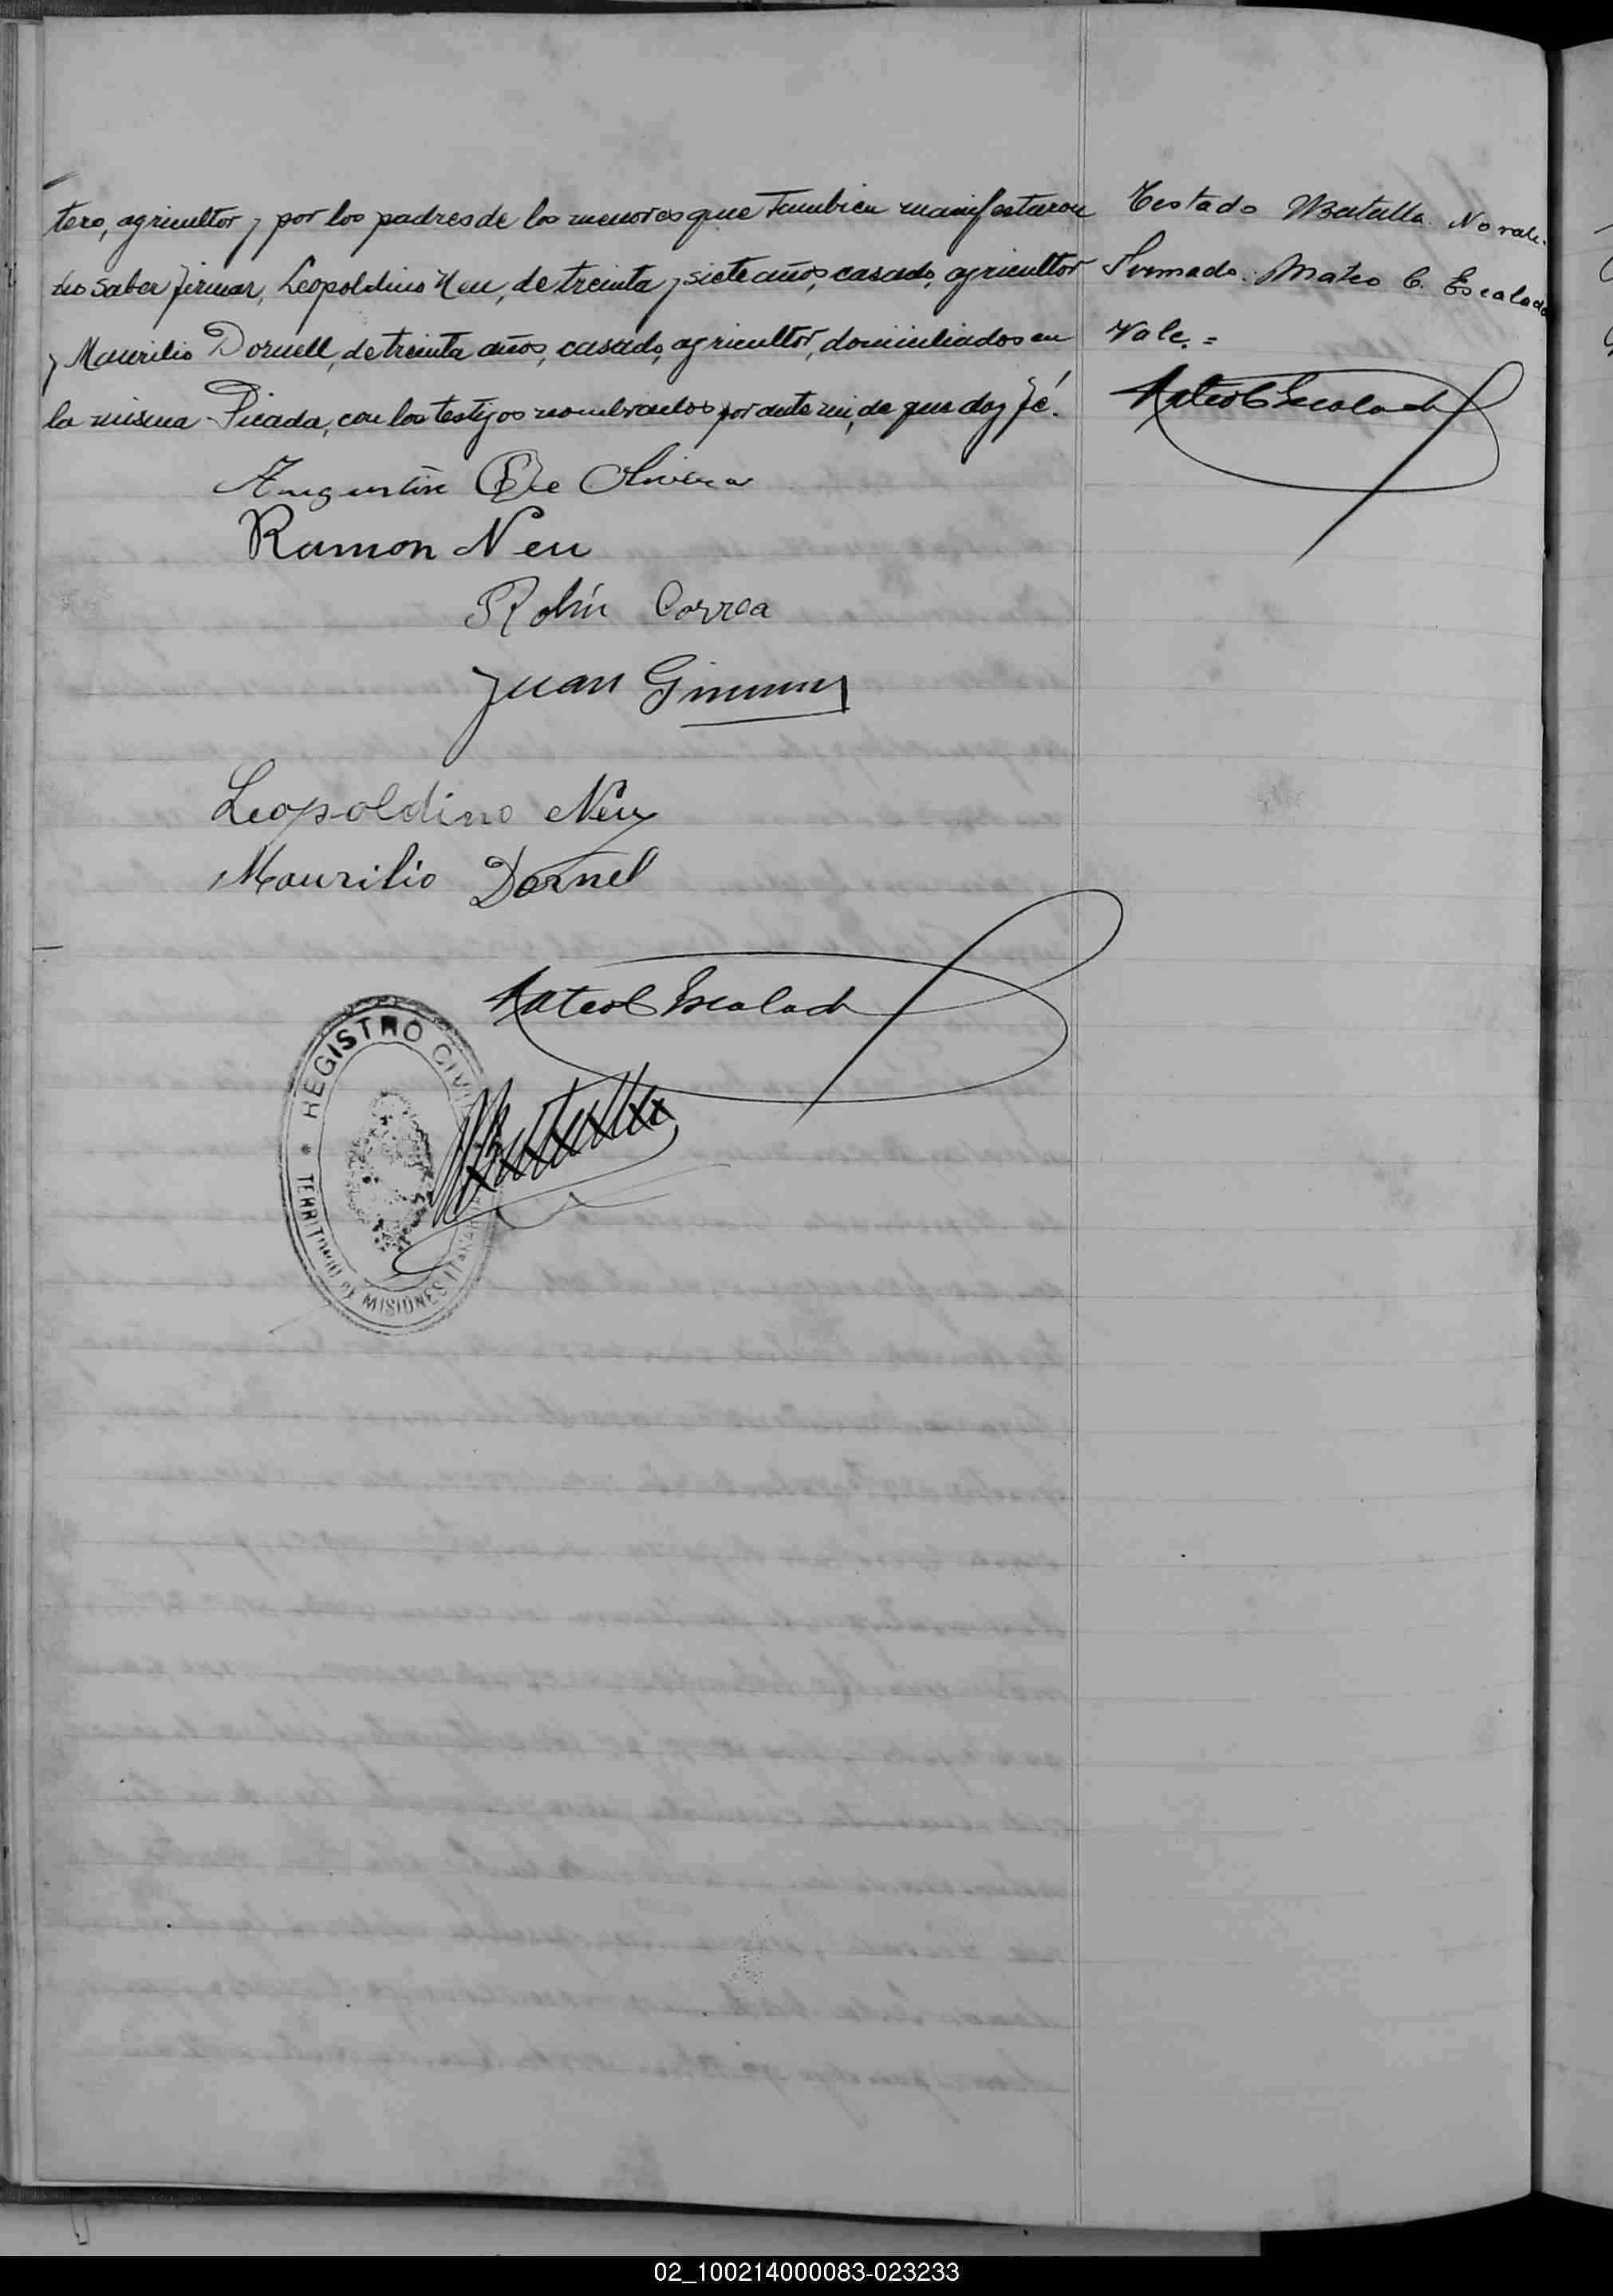 tero, agricultor y por los padres de los menores que tambien manifestaron
no saber firmar, Leopoldino Neu, de treinta y siete años, casado, agricultor
y Maurilio Dornell, de treinta años, casado, agricultor, domiciliados en
la misma Picada, con los testigos nombrados por ante mi, de que doy fé.
Augustin De Olivera
Ramon Neu
Robin Correa
Juan
Leopoldino Neu
Maurilio Dornel
Mateo C Escalada
REGISTRO CIVIL
TERRITORIO DE MISIONES
Testado Batalla. No vale.
Firmado: Mateo C. Escalada
Vale.=
Mateo C Escalada
02_100214000083-023233